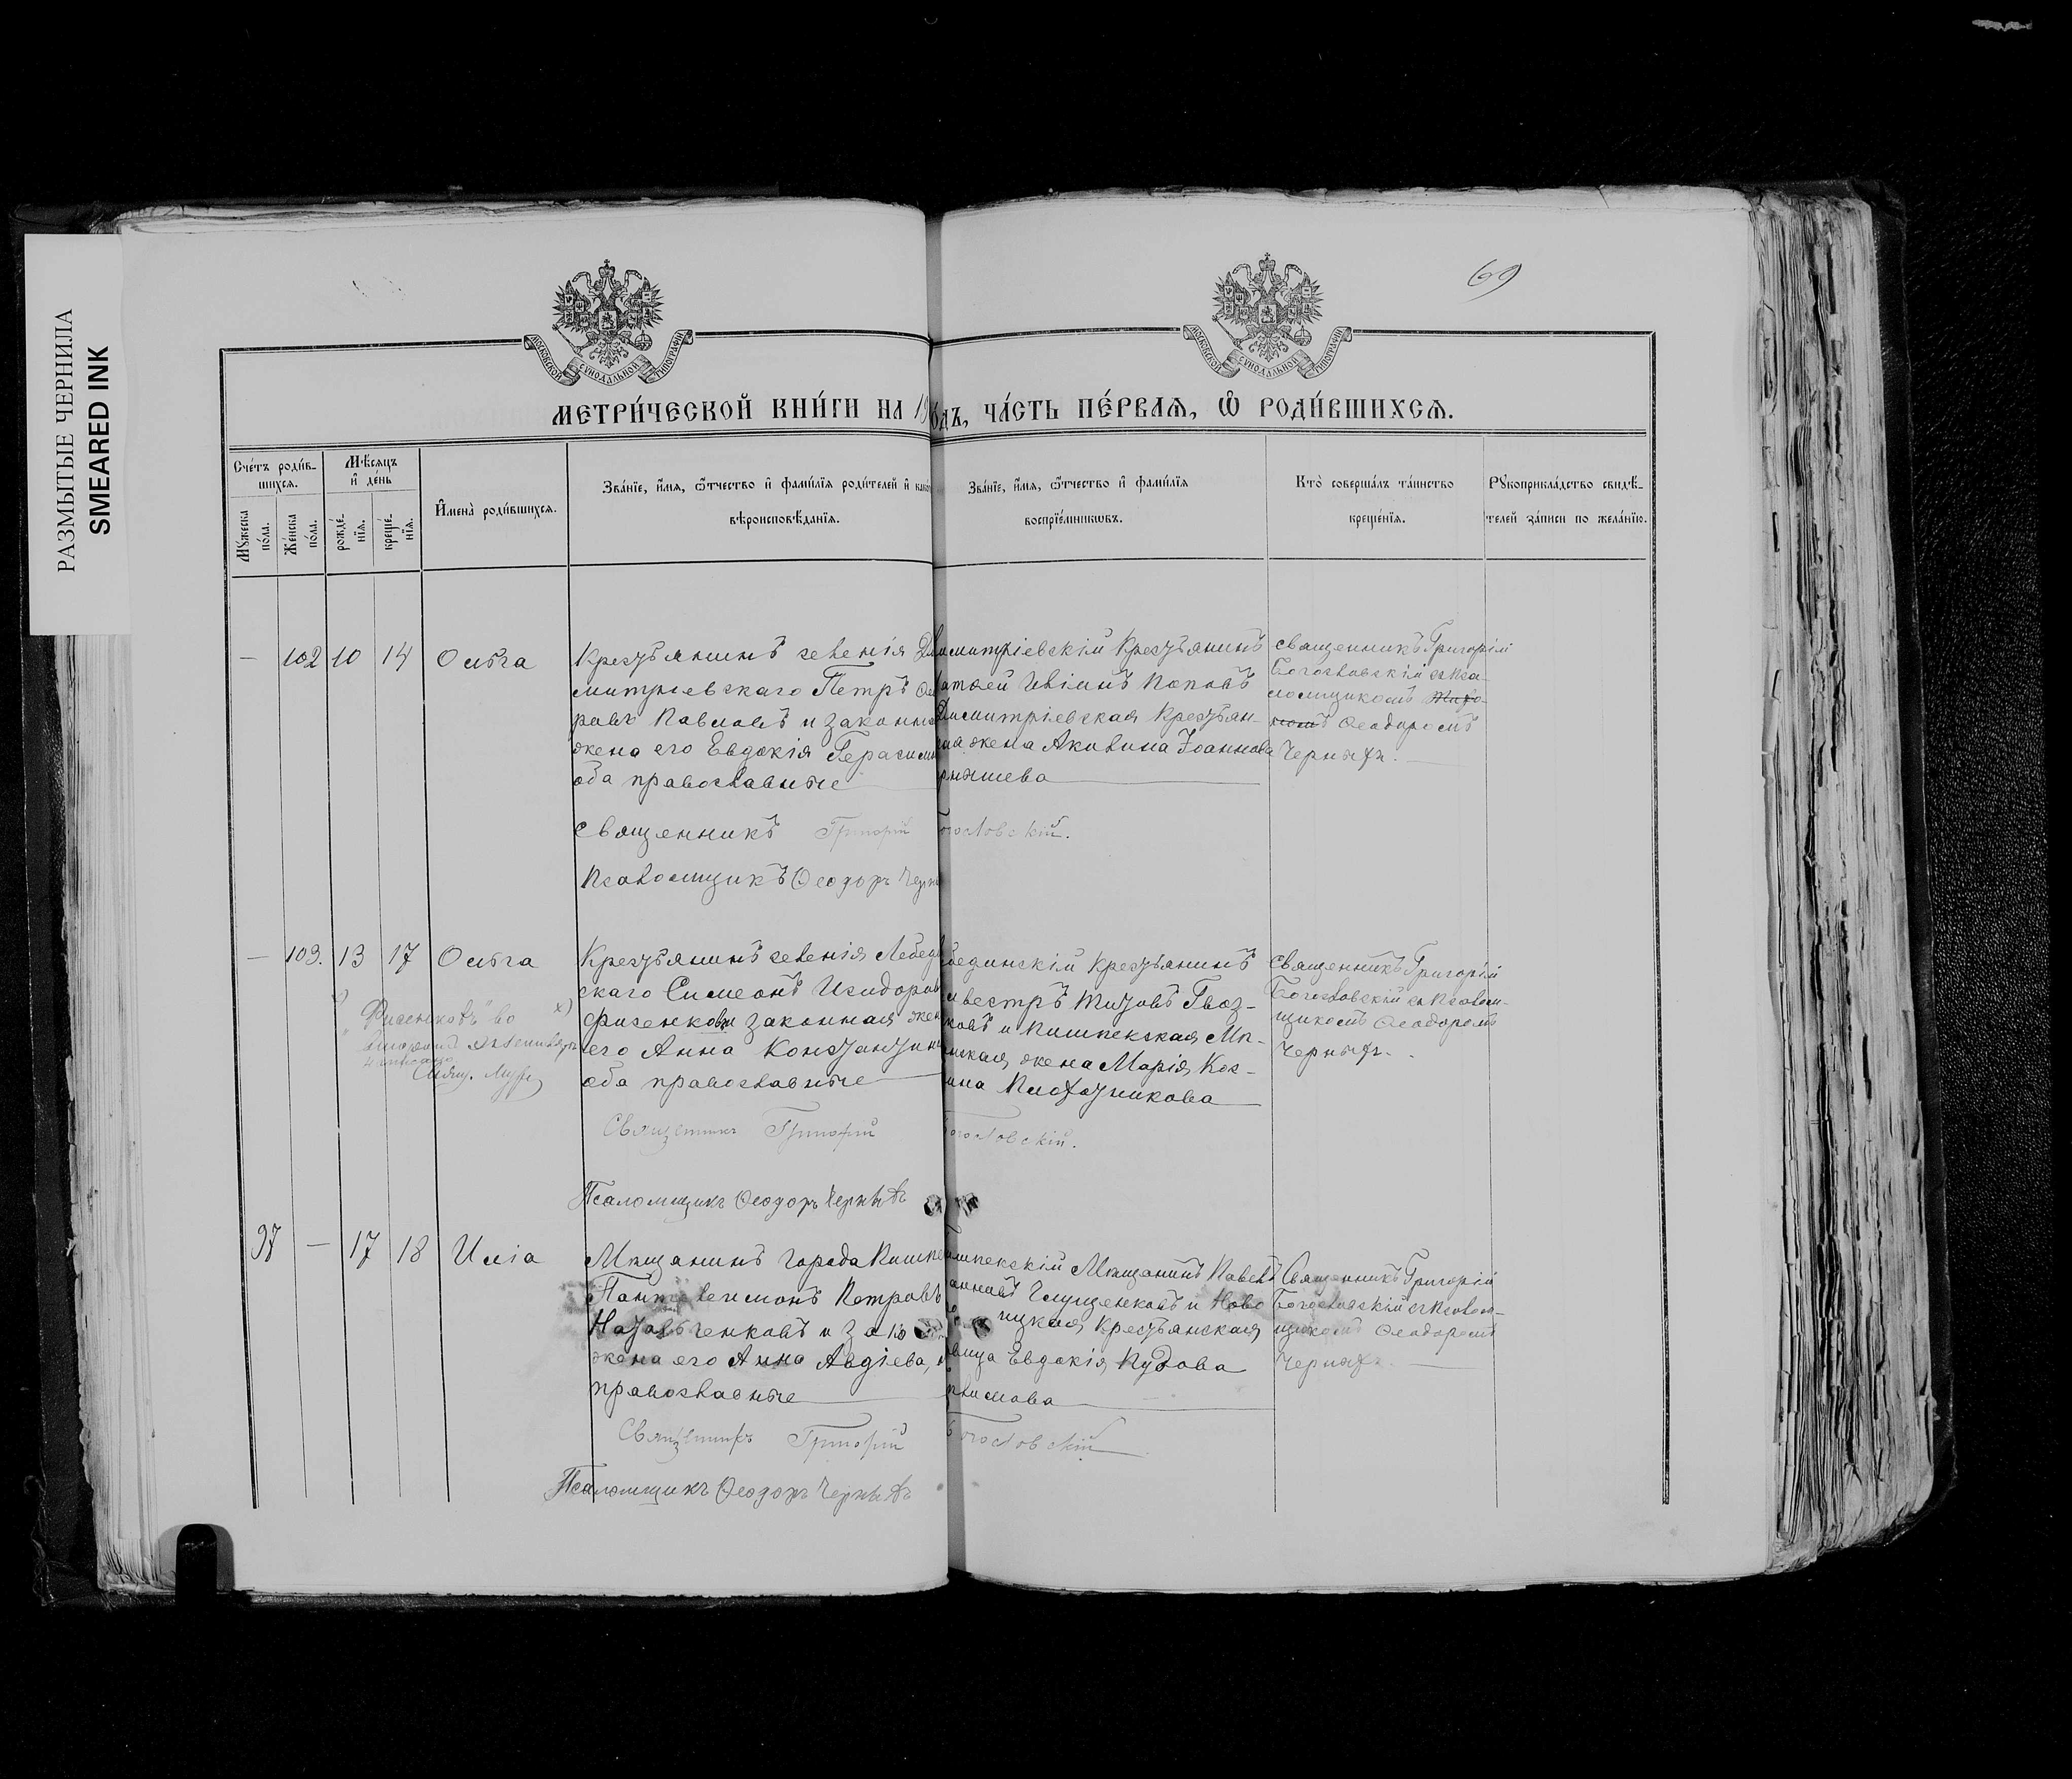 69
РАЗМЫТЫЕ ЧЕРНИЛА
SMEARED INK
МОСКОВСКОЙ СѴНОДАЛЬНОЙ ТИПОГРАФІИ
МОСКОВСКОЙ СѴНОДАЛЬНОЙ ТИПОГРАФІИ
МЕТРИ́ЧЕСКОЙ КНИ́ГИ НА 19
о́дъ, ЧА́СТЬ ПЕ́РВАЯ, Ѡ РОДИ́ВШИХСЯ.
Сче́тъ роди́в-
шихся.
Мꙋ́жеска по́ла.
Же́нска по́ла.
Мѣ́сяцъ и҆ де́нь
рожде́-
нїя.
креще́-
нїя.
И҆мена̀ роди́вшихся.
Зва́нїе, и҆́мя, ѻ҆́тчество и҆ фами́лїя роди́телей и҆ како
вѣроисповѣ́данїя.
Зва́нїе, и҆́мя, ѻ҆́тчество и҆ фами́лїя
воспрїе́мникѡвъ.
Кто̀ соверша́лъ та́инство
креще́нїя.
Рꙋкоприкла́дство свидѣ́-
телей за́писи по жела́нїю.
— 102 10 14 Ольга
Крестьянинъ селенія Д
митріевскаго Петръ
ровъ Павловъ и законна
жена его Евдокія Герасим
оба православные
митріевскій Крестьянинъ
Поповъ
Димитріевская Крестьян-
жена Акилина Іоаннова
Священникъ Григорій
Богословскій съ Пса-
ломщикомъ
Ѳеодоромъ
Черныхъ.
Священникъ Григорій
огословскій.
Псаломщикъ Ѳеодоръ Черн
— 103. 13 17 Ольга
Крестьянинъ селенія Лебед
скаго Симеонъ Исидоров
Фисенковъ и законная жен
его Анна Константин
оба православные
бединскій Крестьянинъ
львестръ Титовъ Гвоз-
ковъ и Пишпекская Мѣ-
нская жена Марія Кос-
Священникъ Григорій
Богословскій съ Псалом-
щикомъ Ѳеодоромъ
Черныхъ.
х)
"Фисенковъ" во
Свящ.
Священникъ Григорій
Богословскій.
Псаломщикъ Ѳеодоръ Черныхъ
97 — 17 18 Илія
Мѣщанинъ города Пишпе
Пантелеимонъ Петровъ
и зако
жена его Анна Авдіева,
православные
шпекскій Мѣщанинъ Павелъ
Глущенковъ и Ново
ицкая Крестьянская
вица Евдокія Пудова
Священникъ Григорій
Богословскій съ Псалом-
щикомъ Ѳеодоромъ
Черныхъ.
Священникъ Григорій
Богословскій
Псаломщикъ Ѳеодоръ Черныхъ